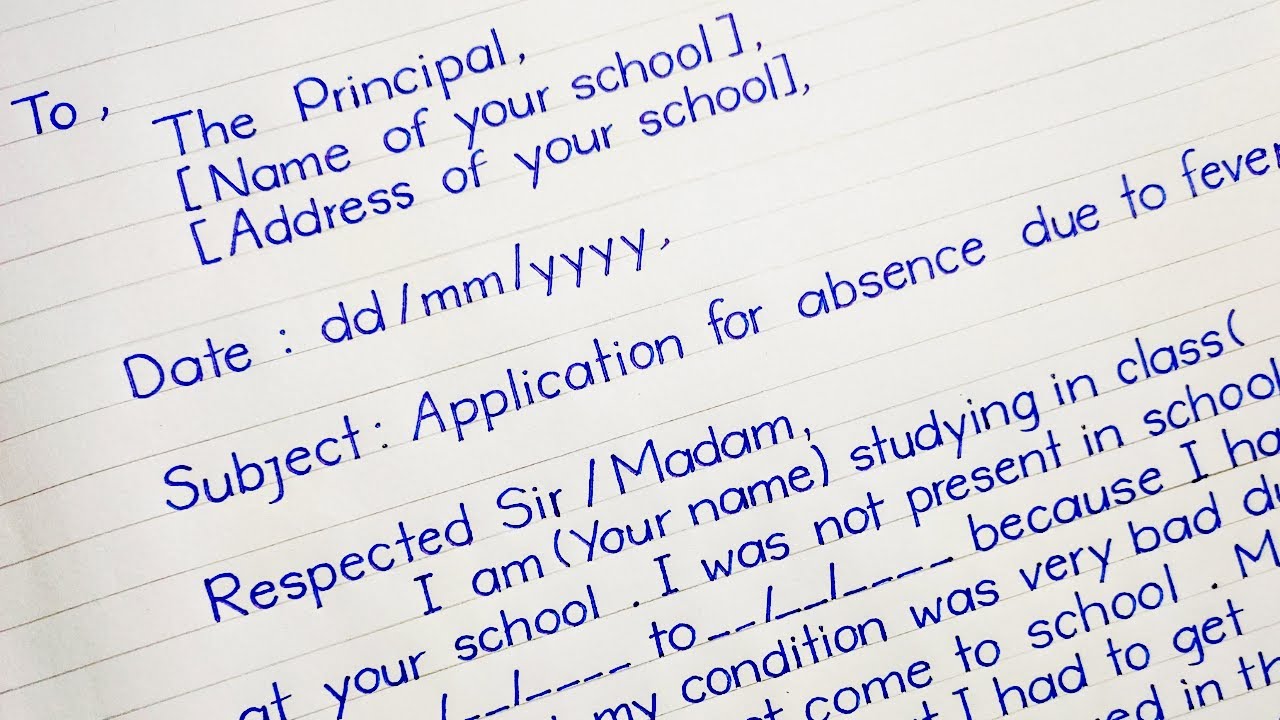 To,
The Principal,
[Name of your school],
[Address of your school],
Date : dd/mm/yyyy,
Subject : Application for absence due to fever
Respected Sir / Madam,
I am (Your name) studying in class(
at your school . I was not present in school
/__/____ to __/__/____ because I ha
my condition was very bad du
come to school . M
I had to get
in th